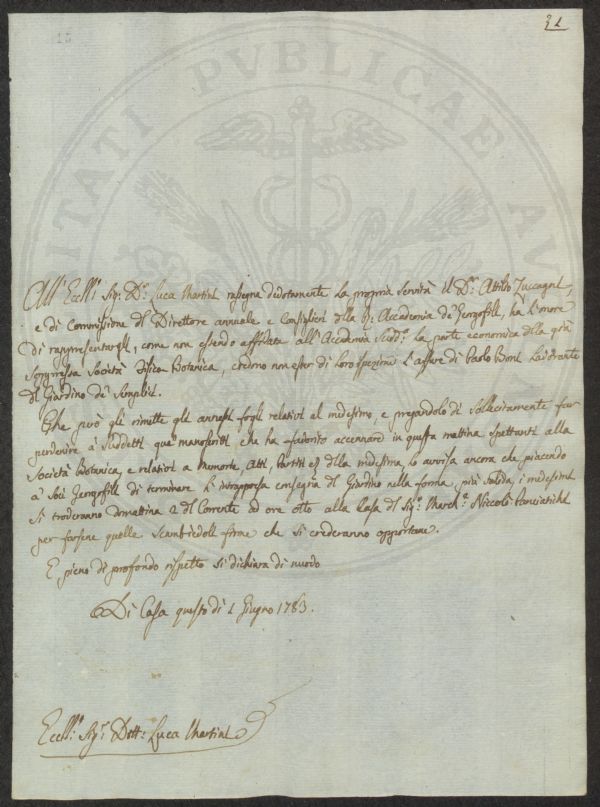 31
15
PVBLICAE
All' Eccll.º Sig.r D.r Luca Martini rassegna devotamente la propria servitù il D.r Attilio Zuccagni,
e di Commissione del Direttore annuale e Consiglieri della R. Accademia de Georgofili, ha l'onore
di rappresentargli, come non essendo affidata all' Accademia Sudd.a la parte economica della già
soppressa Società Fisico Botanica, credono non esser di loro ispezione l'affare di Paolo Lavorante
del Giardino de' Semplici.
Che però gli rimette gli annessi fogli relativi al medesimo, e pregandolo di sollecitamente far
pervenire à suddetti que' manoscritti che ha favorito accennare in questa mattina spettanti alla
Società Botanica, e relativi a Memorie, Atti, Partiti della medesima, lo avvisa ancora che piacendo
a' Soci Georgofili di terminare l'intrapresa consegna del Giardino nella forma più solida, i medesimi
si troveranno domattina 2 del Corrente ad ore otto alla Casa del Sig.r March.e Niccolò Panciatichi
per farsene quelle scambievoli firme che si crederanno opportune.
E pieno di profondo rispetto si dichiara di nuovo
Di Casa questo dì 1 Giugno 1783.
Eccll.º Sig.r Dott.r Luca Martini